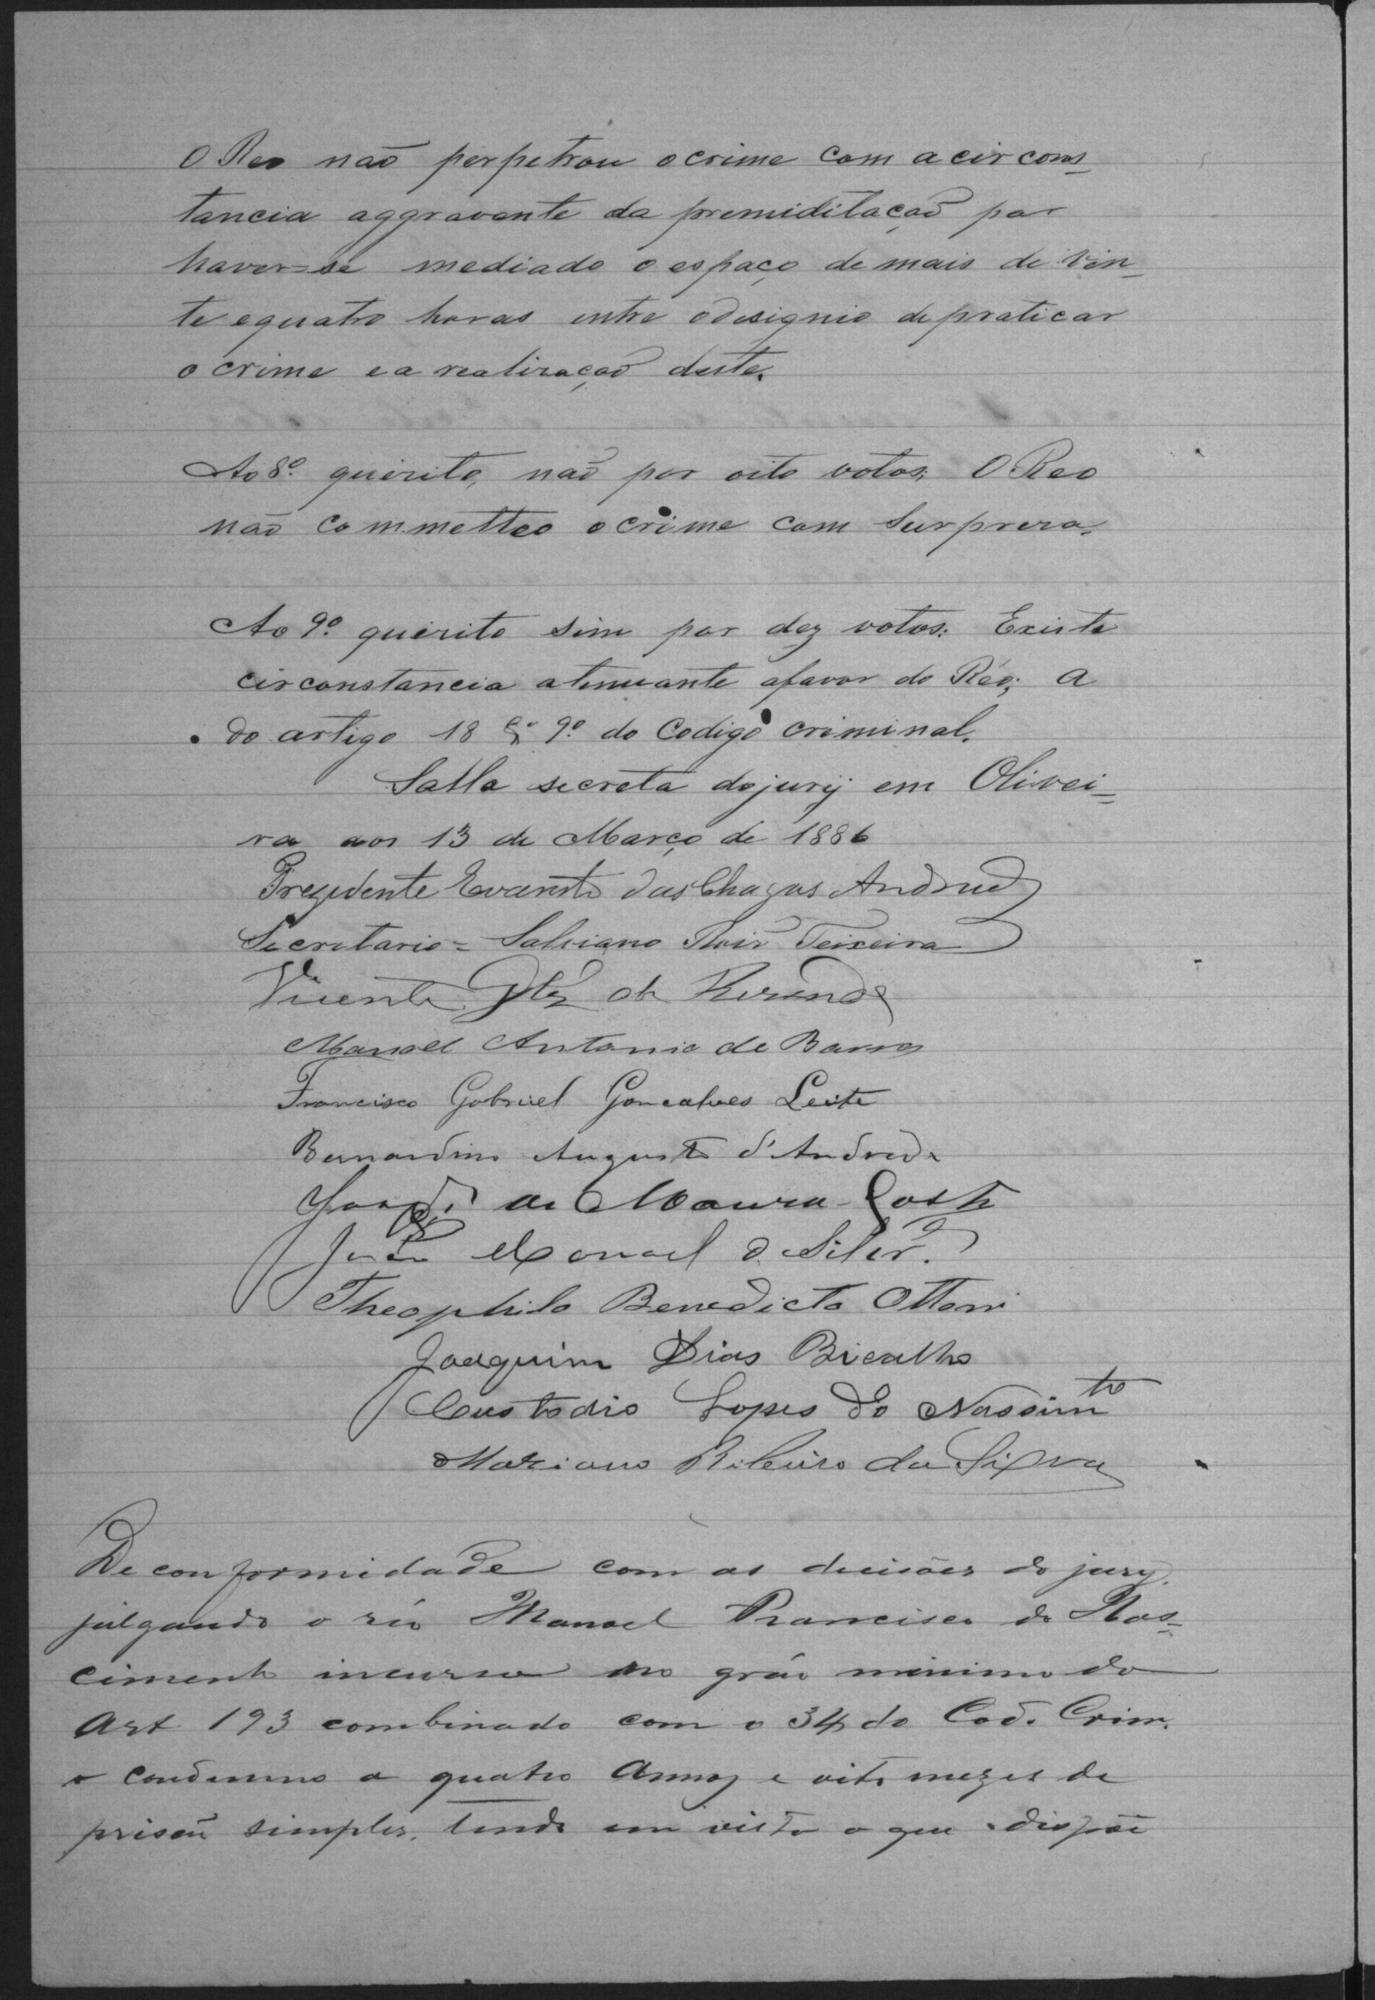 O Reo não perpetrou o crime com a circons-
tancia aggravante da premiditação por
haver-se mediado o espaço de mais de vin-
te e quatro horas entre o designio de praticar
o crime e a realização deste.
Ao 8º quesito, não por oito votos; O Reo
não commetteo o crime com surpreza.
Ao 9º quesito sim por dez votos: Existe
circonstancia atenuante a favor do Réo; a
do artigo 18 § 9º do Codigo criminal.
Salla secreta do jury em Olivei=
ra aos 13 de Março de 1886
Prezidente Evaristo das Chagas Andrade
Secretario = Salviano Teixeira
Vicente de Rezende
Manoel Antonio de Barros
Francisco Gabriel Goncalves Leite
Bernardino Augusto d'Andrade
de Moura Costa
João Manoel da Silvrª
Theophilo Benedicto Ottoni
Joaquim Dias Bicalho
Custodio Lopes do Nassimto
Mariano Ribeiro da Silva
De conformidade com as decisões do jury,
julgando o réo Manoel Francisco do Nas-
cimento incurso no gráo minimo do
Art 193 combinado com o 34 do Cod. Crim.
o condemno a quatro annos e oito mezes de
prisão simples, tendo em vista o que dispõe